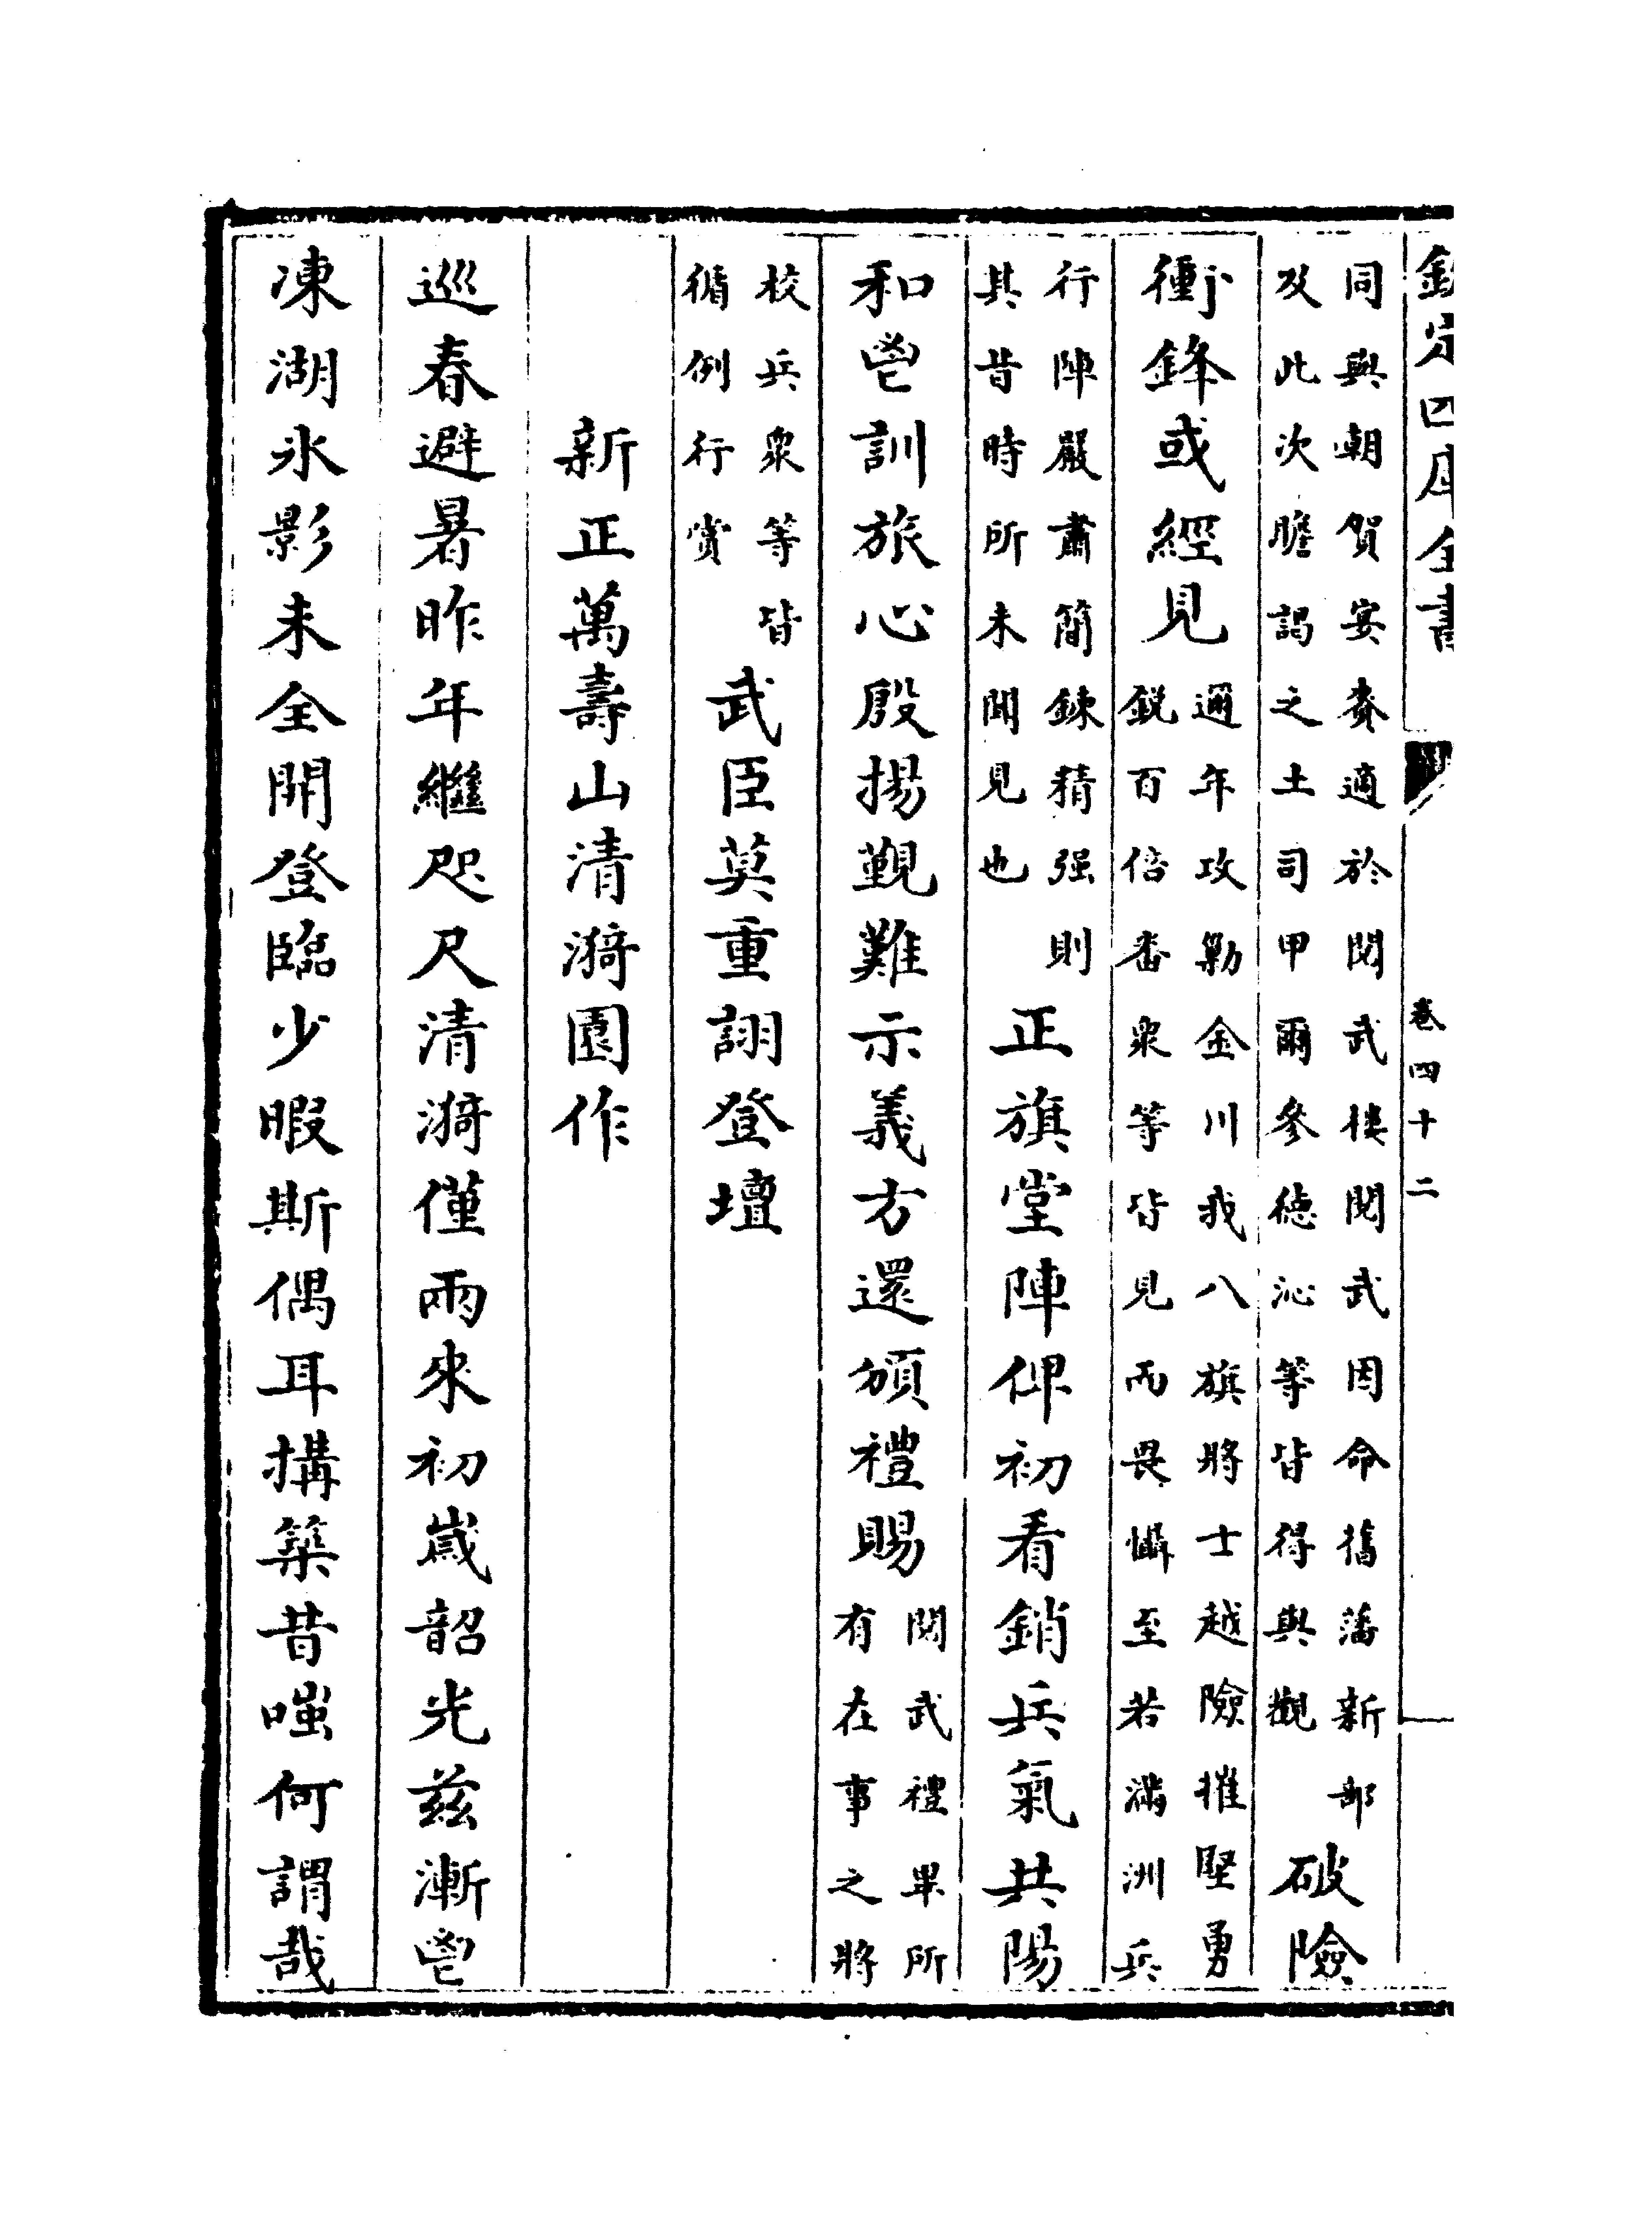 欽定四庫全書 卷四十二
同與朝賀宴賚適於閱武樓閱武因命舊藩新部
及此次瞻謁之土司甲爾參德沁等皆得與觀
破險
衝鋒或經見
邇年攻勦金川我八旗將士越險摧堅勇
銳百倍番衆等皆見而畏懾至若滿洲兵
行陣嚴肅簡鍊精强則
其昔時所未聞見也
正旗堂陣仰初看銷兵氣共陽
和鬯訓旅心殷揚覲難示義方還頒禮賜
閱武禮畢所
有在事之將
校兵衆等皆
循例行賞
武臣莫重詡登壇
新正萬壽山清漪園作
巡春避暑昨年繼咫尺清漪僅兩來初歲韶光兹漸鬯
凍湖氷影未全開登臨少暇斯偶耳搆築昔嗤何謂哉